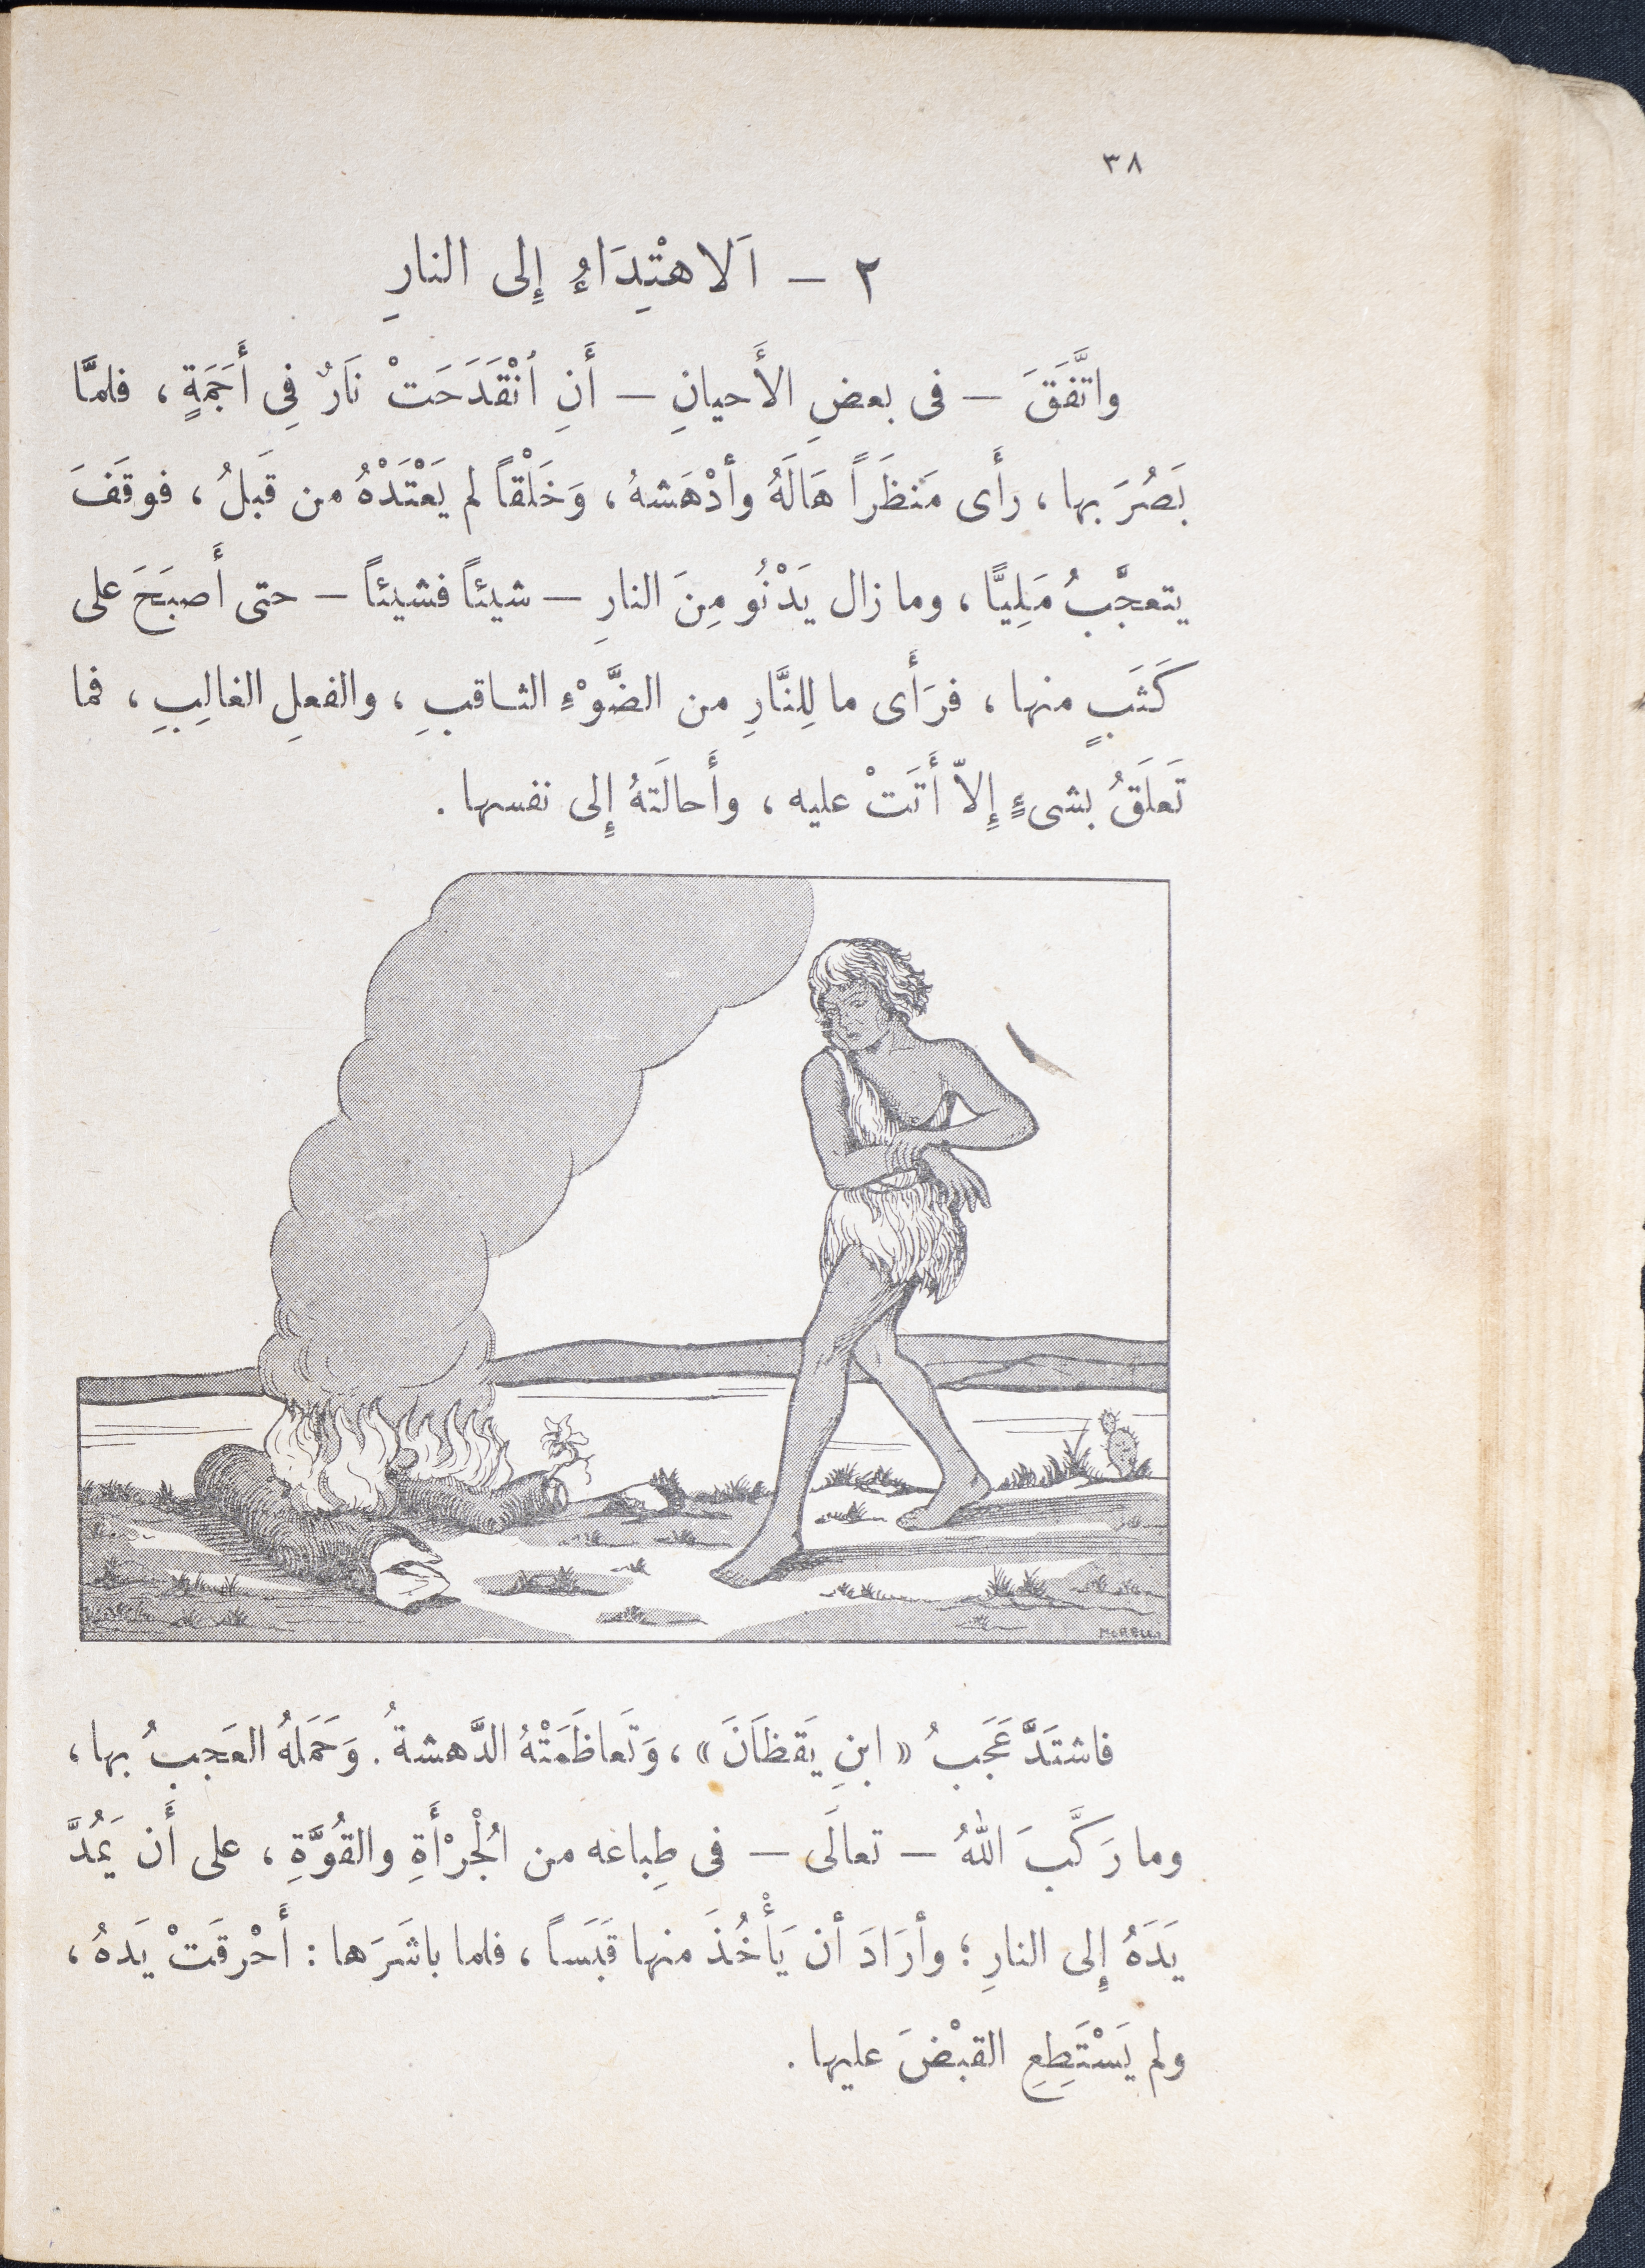 ٣٨
٢ – اَلاهْتِدَاءُ إِلى النارِ
واتَّفَقَ – فى بعضِ الأَحيانِ – أَنِ ٱنْقَدَحَتْ نَارٌ فِى أَجَمَةٍ ، فلمَّا
بَصُرَ بها ، رأَى مَنظَراً هَالَهُ وأدْهَشهُ ، وَخَلْقاً لم يَعْتَدْهُ من قَبلُ ، فوقَفَ
يتعجَّبُ مَلِيًّا ، وما زال يَدْنُو مِنَ النارِ – شيئاً فشيئاً – حتى أَصبَحَ على
كَثَبٍ منها ، فرَأَى ما لِلنَّارِ من الضَّوْءِ الثاقبِ ، والفعلِ الغالِبِ ، فما
تَعلَقُ بشىءٍ إِلاّ أَتَتْ عليه ، وأَحالَتهُ إِلى نفسها .
MORELLI
فاشتَدَّ عَجَبُ « ابنِ يَقظَانَ » ، وَتَعاظَمَتْهُ الدَّهشةُ . وَحَمَلهُ العَجبُ بها ،
وما رَكَّبَ اللهُ – تعالَى – فى طِباعه من الْجُرْأَةِ والقُوَّةِ ، على أَن يَمُدَّ
يَدَهُ إِلى النارِ ؛ وأرَادَ أن يَأْخُذَ منها قَبَساً ، فلما باشَرَها : أَحْرقَتْ يَدهُ ،
ولم يَسْتَطِعِ القبْضَ عليها .